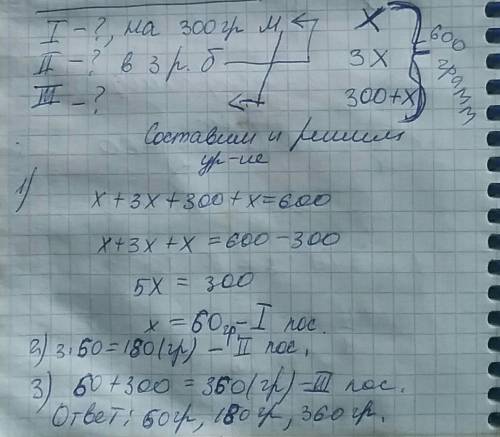 I - ?, на 300гр м. x
II - ? в 3 р. б 3x
III - ? 300+x
600 грамм
Составим и решим
ур-ие
1)
x + 3x + 300 + x = 600
x + 3x + x = 600 - 300
5x = 300
x = 60гр - I пос.
2) 3·60 = 180(гр) - II пос.
3) 60 + 300 = 360(гр) - III пос.
Ответ: 60гр, 180гр, 360гр.